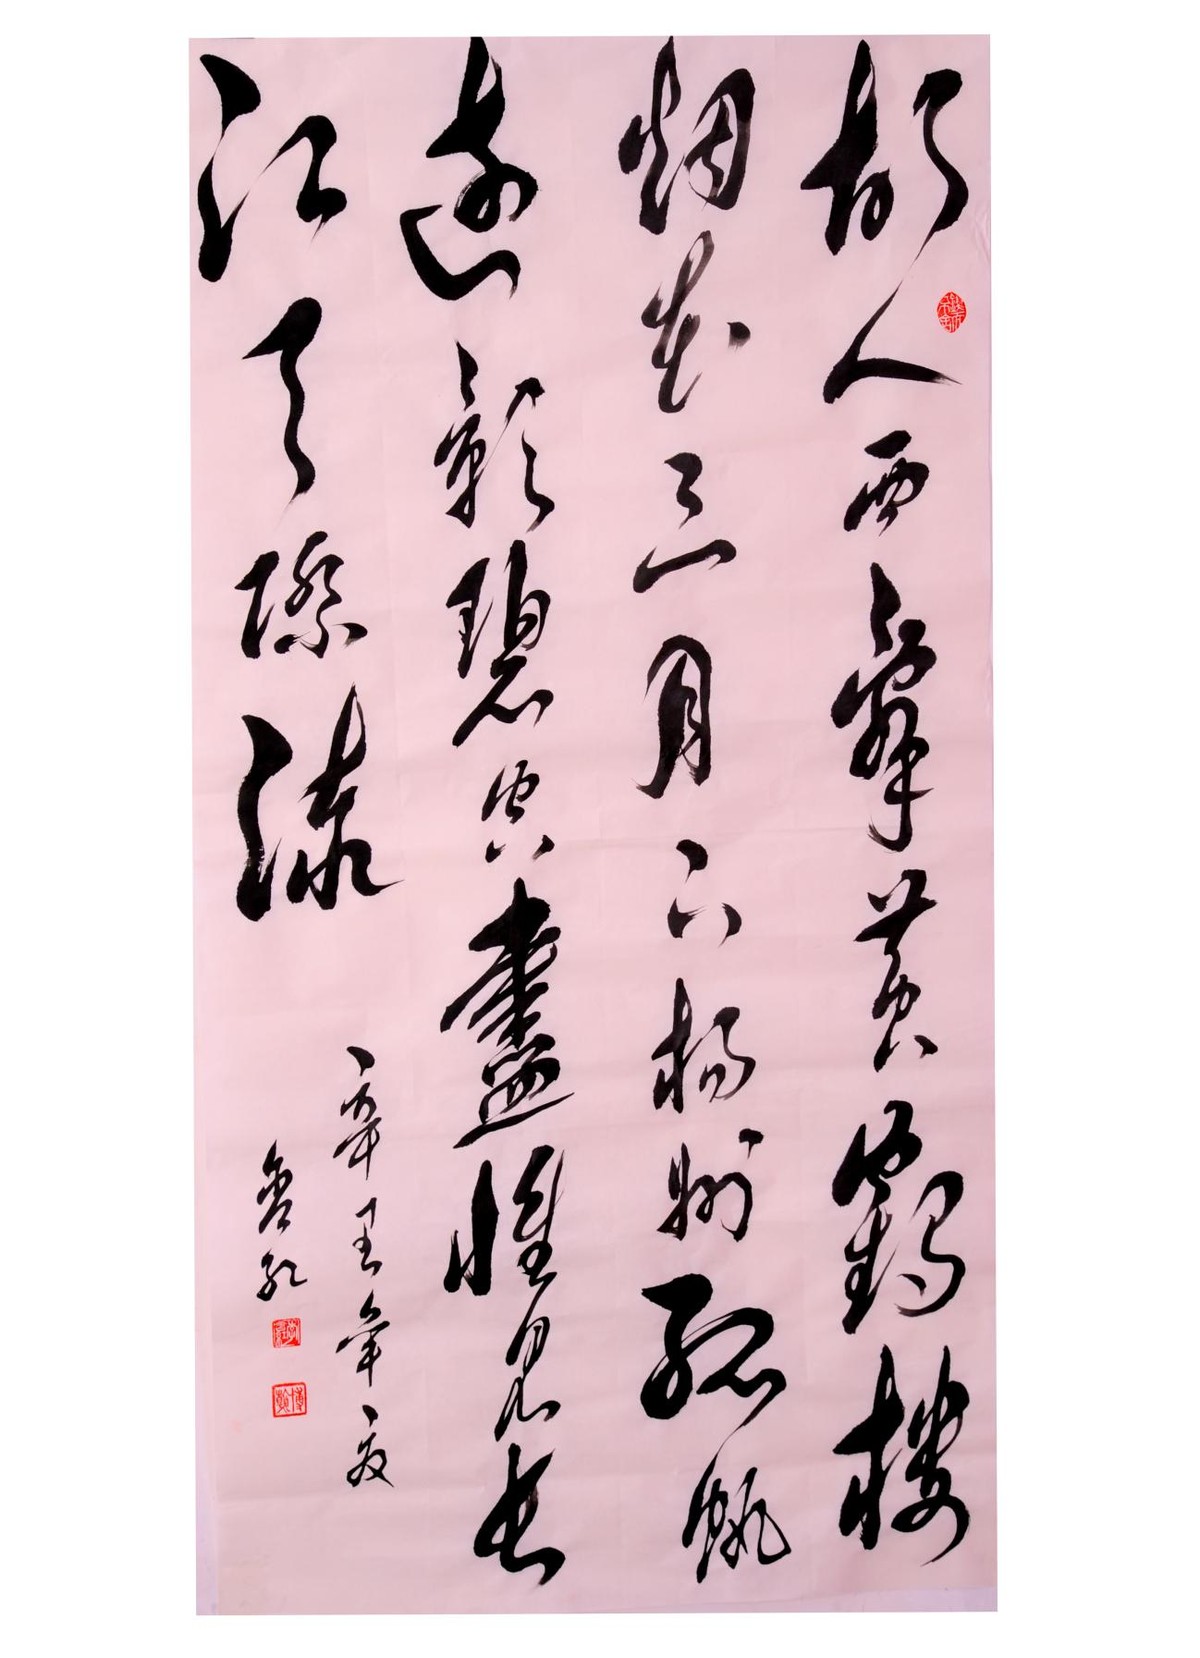 故人西辭黄鶴樓
烟花三月下楊州孤帆
遠影碧空盡惟見長
江天際流
辛丑年夏